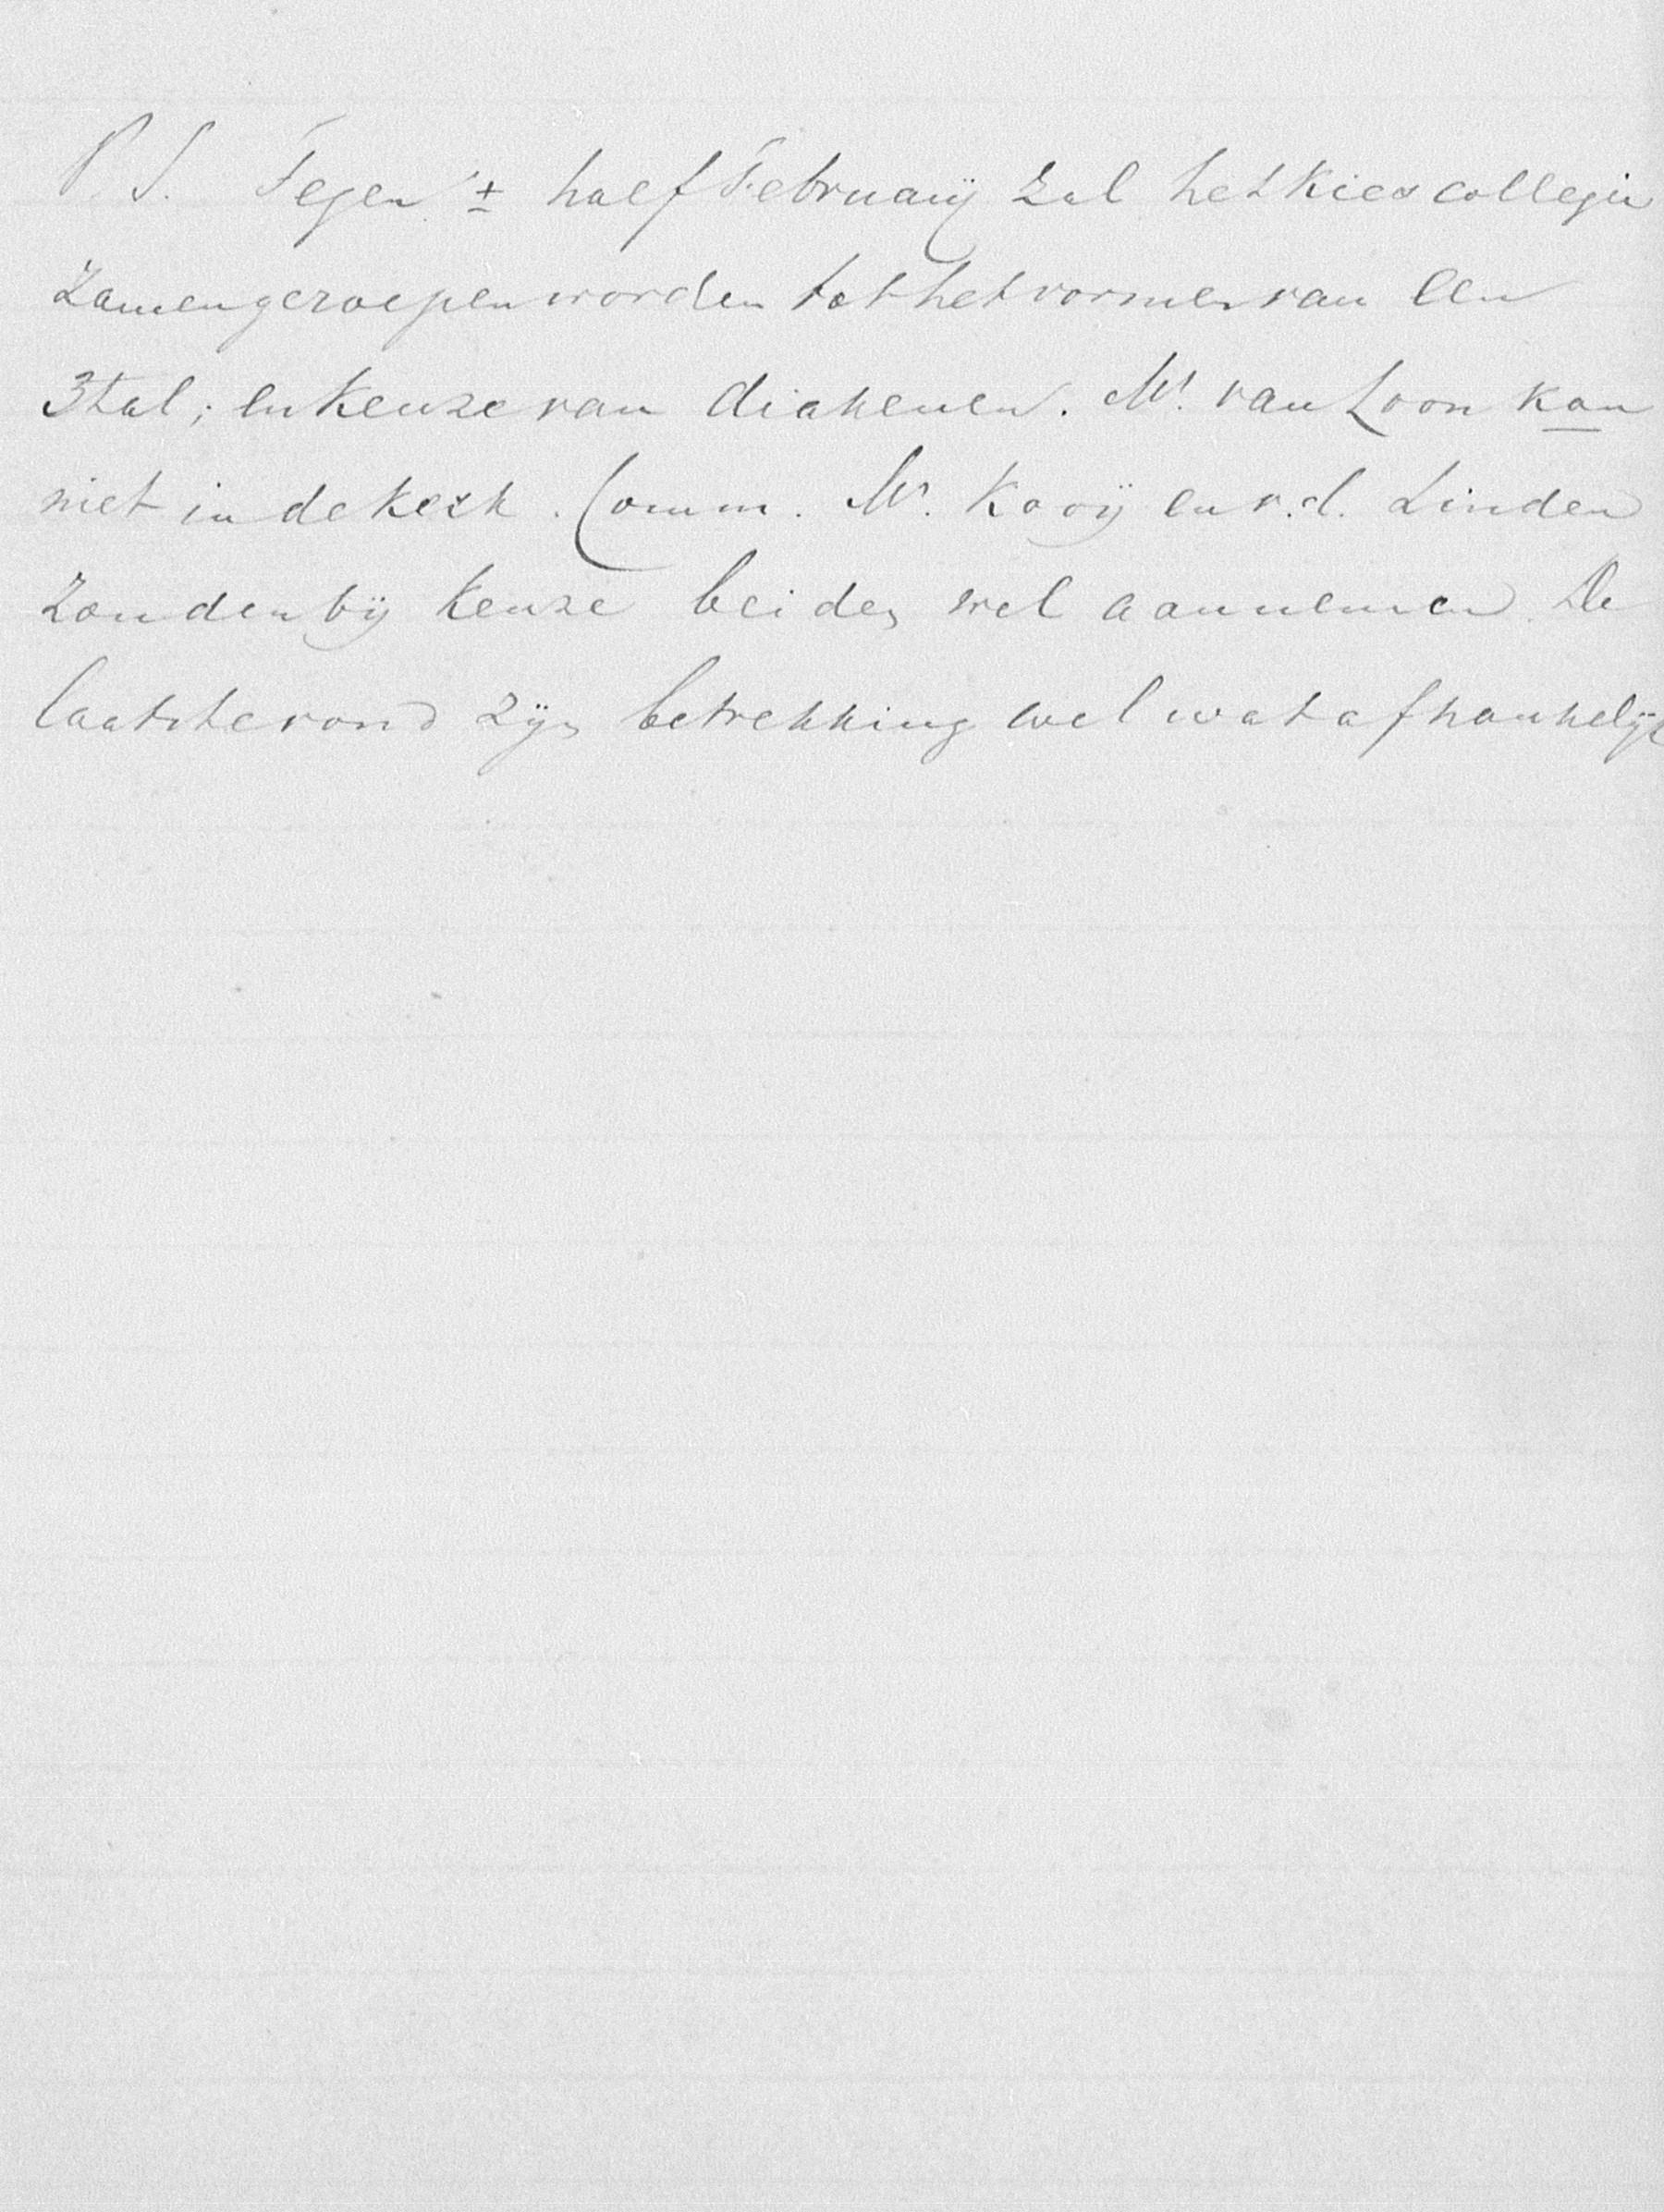 P.S. Tegen ± half Februarij zal het Kiescollegie
zamengeroepen worden tot het vormen van een
3tal; en keuze van diakenen. Mr. van Loon kan
niet in de kerk. Comm. Mr. Kooij en v.d. Linden
zouden bij keuze beiden wel aannemen. De
laatste vond zijn betrekking wel wat afhankelijk